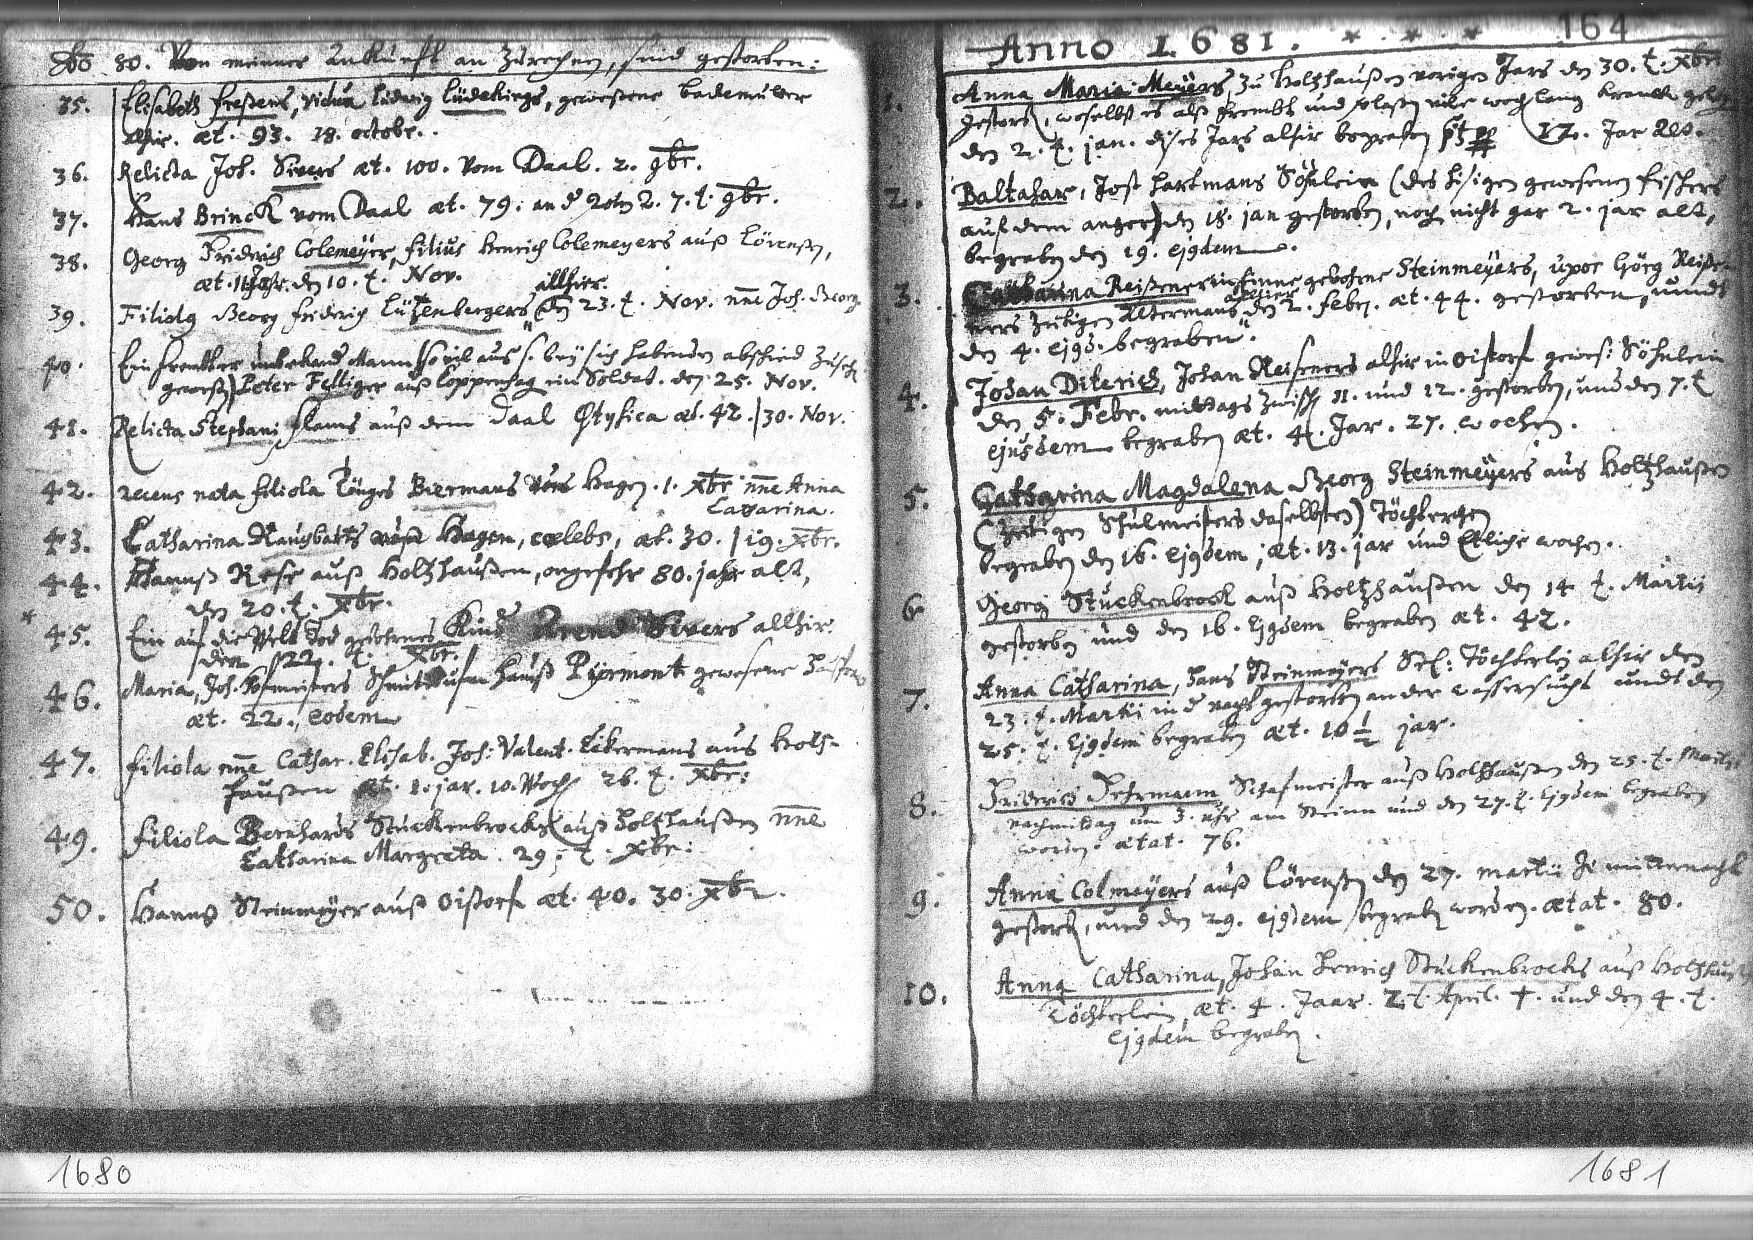 80. Von meiner ankunft an zurechnen, sind gestorben:
35. Elisabeth Fressens, vidua Ludwig Lüdekings, gewessene bademutter
alhir. æt. 93. 18. octobr.
36. Relicta Joh. Sivers æt. 100. vom Daal. 2. 9br.
37. Hans Brinck vom Daal æt. 79. 7. t. 9br.
38. Georg Fridrich Colemeyer, filius Henrich Colemeyers auß Lörensen,
æt. den 10. t. Nov.
allhier
39. Filiolg Georg Friderich Lützenbergers den 23. t. Nov. nne Joh. Georg
40. Ein frembter unbekand Mann bey sich habenden abschied
gewest) Peter Felliger auß Coppenhag ein Soldat. den 25. Nov.
41. Relicta Stephani Flams auß dem Daal Phtysica æt. 42. | 30. Nov.
42. recens nata filiola Tönges Biermans vörs Hagen. 1. Xbr nne Anna
Catarina.
43. Catharina Raugbarts Hagen, cælebs, æt. 30. | 19. Xbr.
44. Hannß Rese auß Holtzhaußen, ongefehr 80. jahr alt,
den 20. t. Xbr.
* 45. Ein auf die Welt Tod gebohrnes Kind Arend Sivers allhir.
den 22. t. Xbr.
46. Maria, Joh. Hofmeisters Schmit aufm Hauß Pyrmont gewesene
æt. 22., eodem
47. filiola nne Cathar. Elisab. Joh. Valent. Eikermans aus Holtz-
haußen æt. 1. jar. 10. Woch 26. t. Xbr:
49. filiola Bernhards Stuckenbrocks auß Holtzhaußen nne
Catharina Margreta. 29. t. Xbr:
50. Hanns Steinmeyer auß Oistorf æt. 40. 30. Xbr.
1680
164
Anno 1681. * * *
1. Anna Maria Meyers, zu Holtzhaußen vorigen Jars den 30. t. Xbr
gestorb, woselbst es alß frembt und
den 2. t. jan. dises Jars alhir begraben 12. Jar
2. Baltasar, Jost Hartmans Söhnlein (des hisigen gewesenen fischers
auf dem anger) den 18. jan gestorben, noch nicht gar 2. jar alt,
begraben den 19. ejgdem.
3. Catharina Reißenerin, eine gebohrne Steinmeyers, uxor Görg Reiße-
ners zeitigen Altermans alhier den 2. febr. æt. 44. gestorben, undt
den 4. ejgd. begraben.
4. Johan Diterich, Johan Reiseners alhir in Oistorf gewes: Söhnlein
den 5. Febr. mittags zwisch 11. und 12. gestorben, und den 7. t
ejusdem begraben æt. 4. Jar. 27. wochen.
5. Catharina Magdalena Georg Steinmeyers aus Holtzhaußen
(zeitigen Schulmeisters daselbsten) Töchterchen
begraben den 16. ejgdem, æt. 13. jar und Etliche wochen.
6 Georg Stuckenbrock auß Holtzhaußen den 14 t. Martii
gestorben und den 16. Ejgdem begraben æt. 42.
7. Anna Catharina, Hans Steinmeyers Sel: Töchterlein alhir den
23. t. Martii in d nacht gestorben an der Wassersucht undt den
25. t. Ejgdem begraben æt. 10 1/2 jar.
8. Friderich Fehrmann Schafmeister auß Holtzhaußen den 25. t. Martii
nachmittag um 3. uhr am Steinn und den 27. t. Ejgdem begraben
worden. ætat. 76.
9. Anna Colmeyers auß Lörensen den 27. martii zu mitternacht
gestorb, und den 29. ejgdem begrab worden. ætat. 80.
10. Anna Catharina, Johan Henrich Stuckenbrocks auß Holtzhaußen
Töchterlein, æt. 4. Jaar. 2. t. April. †. und den 4. t.
Ejgdem begraben.
1681